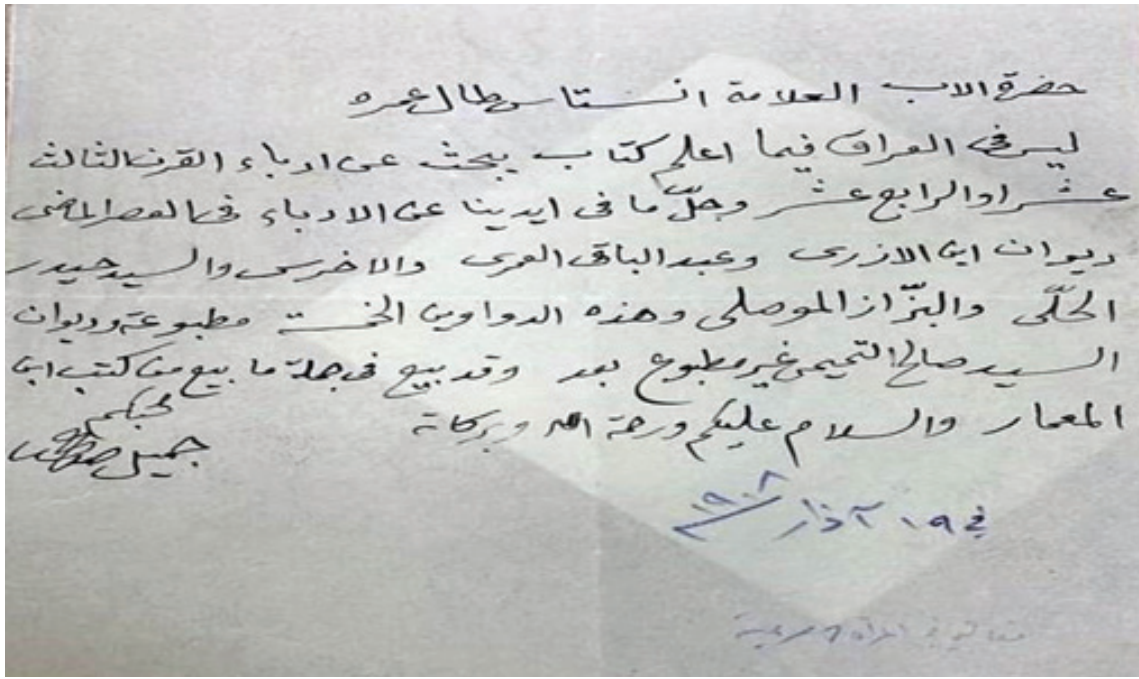 حضرة الاب العلامة انستاس طال عمره
ليس في العراق فيما اعلم كتاب يبحث عن ادباء القرن الثالث
عشر او الرابع عشر وجلّ ما في ايدينا عن الادباء في العصر الماضي
ديوان ابن الازري وعبد الباقي العمري والاخرس والسيد حيدر
الحلّي والبزّاز الموصلي وهذه الدواوين الخمسة مطبوعة وديوان
السيد صالح التميمي غير مطبوع بعد وقد بيع في جملة ما بيع من كتب ابن
المعمار والسلام عليكم ورحمة الله وبركاته
محبكم
جميل صدقي
في ١٩ آذار ١٩٠٨